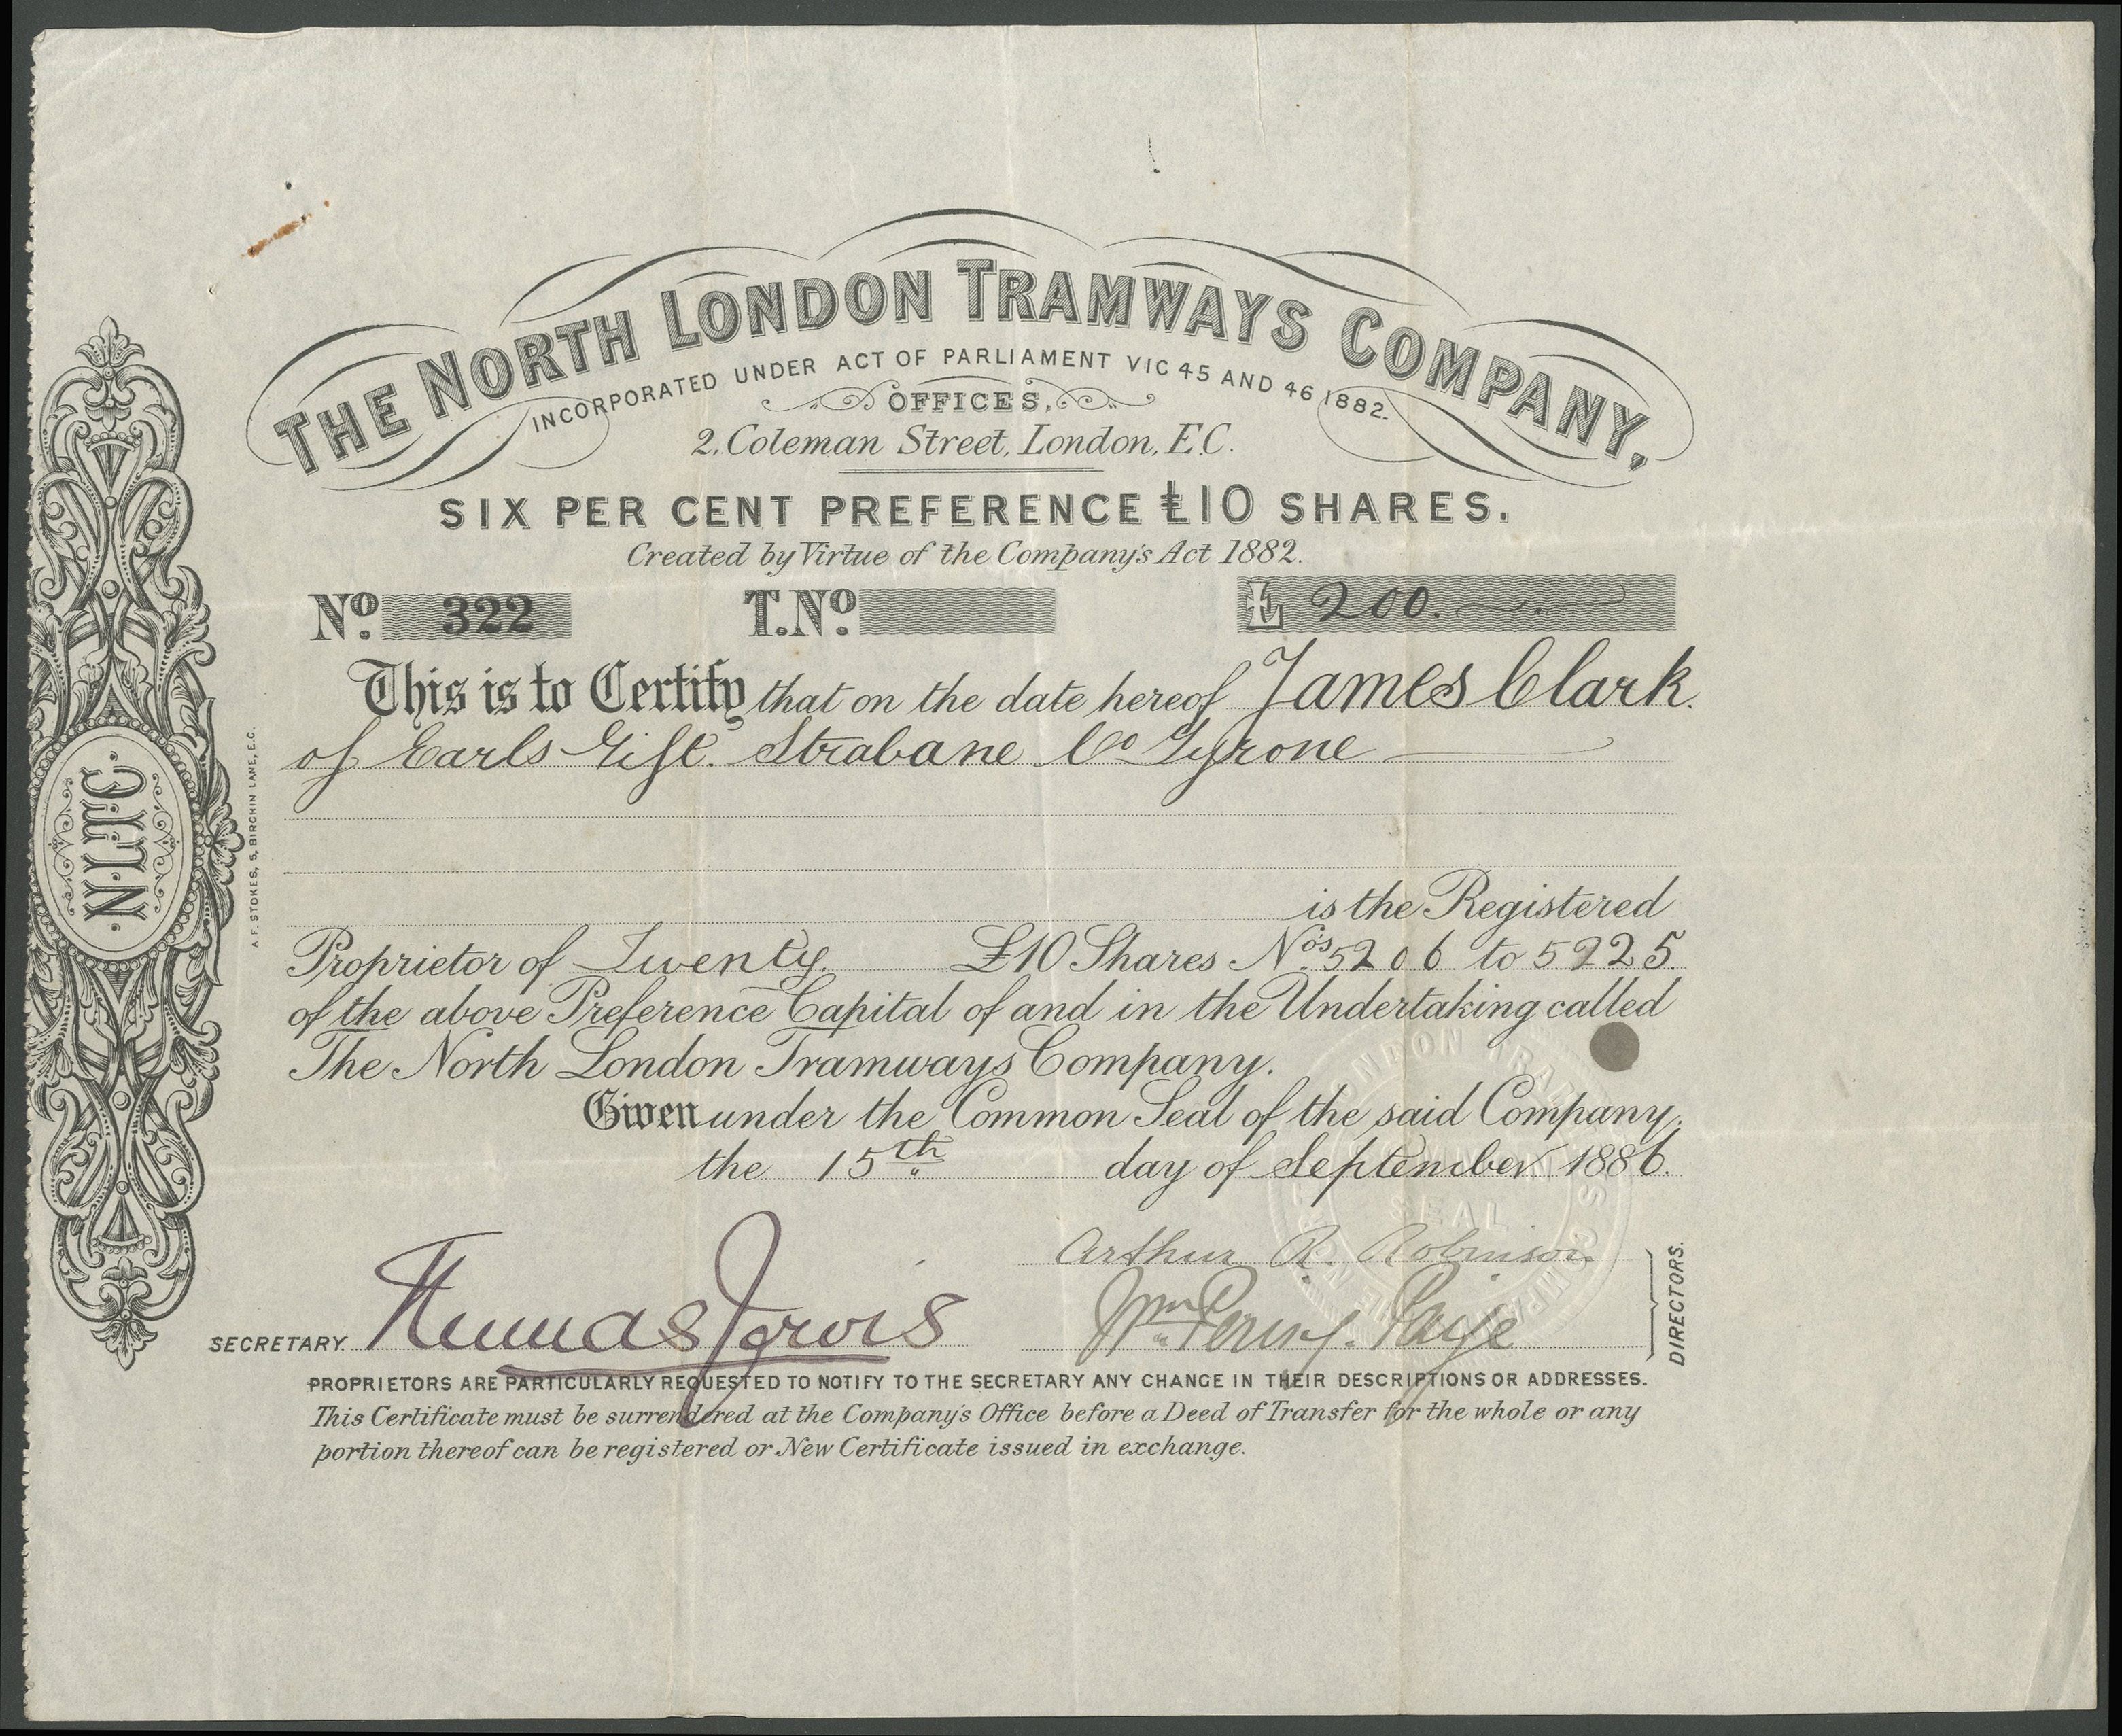 THE NORTH LONDON TRAMWAYS COMPANY,
INCORPORATED UNDER ACT OF PARLIAMENT VIC 45 AND 46 1882.
OFFICES,
2, Coleman Street, London, E.C.
SIX PER CENT PREFERENCE £10 SHARES.
Created by Virtue of the Company's Act 1882.
No. 322 T. No. £ 200.
This is to Certify that on the date hereof James Clark.
of Earls Gift. Strabane Co Tyrone
is the Registered
Proprietor of Twenty. £10 Shares Nos. 5206 to 5225.
of the above Preference Capital of and in the Undertaking called
The North London Tramways Company.
Given under the Common Seal of the said Company.
the 15th day of September 1886.
Arthur R. Robinson
SECRETARY. Jarvis Wm Paige
DIRECTORS.
PROPRIETORS ARE PARTICULARLY REQUESTED TO NOTIFY TO THE SECRETARY ANY CHANGE IN THEIR DESCRIPTIONS OR ADDRESSES.
This Certificate must be surrendered at the Company's Office before a Deed of Transfer for the whole or any
portion thereof can be registered or New Certificate issued in exchange.
N.L.T.C.
A.F. STOKES, 5, BIRCHIN LANE, E.C.
SEAL